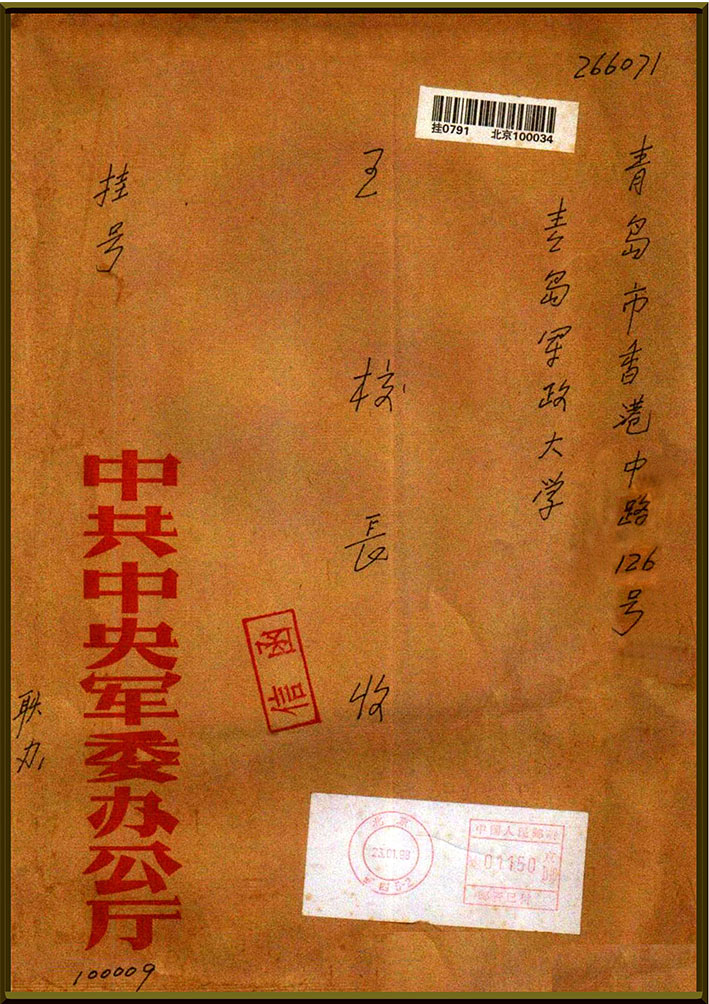 266071
青岛市香港中路126号
青岛军政大学
挂0791 北京100034
王校長收
挂号
信函
中共中央军委办公厅
联办
100009
北京
23.01.98
中国人民邮政
01150
邮资已付